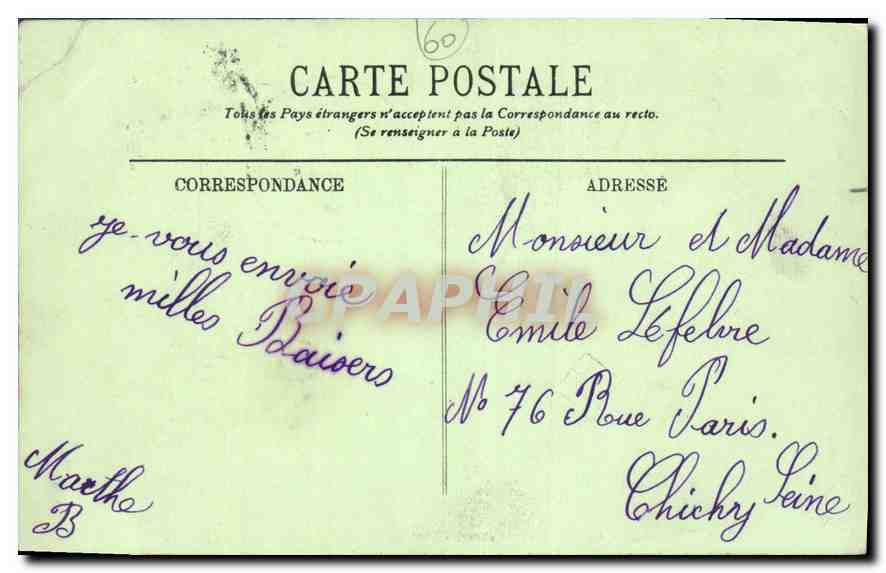 60
CARTE POSTALE
Tous les Pays étrangers n'acceptent pas la Correspondance au recto.
(Se renseigner à la Poste)
CORRESPONDANCE
je vous envoié
milles Baisers
Marthe
B
ADRESSE
Monsieur et Madame
Emile Lefebvre
No 76 Rue Paris.
Chichy Seine
CPAPHIL